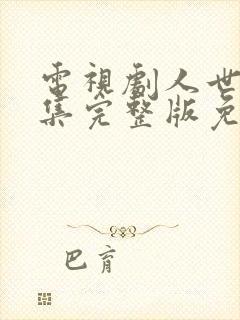 電視劇人世
集完整版免
巴育